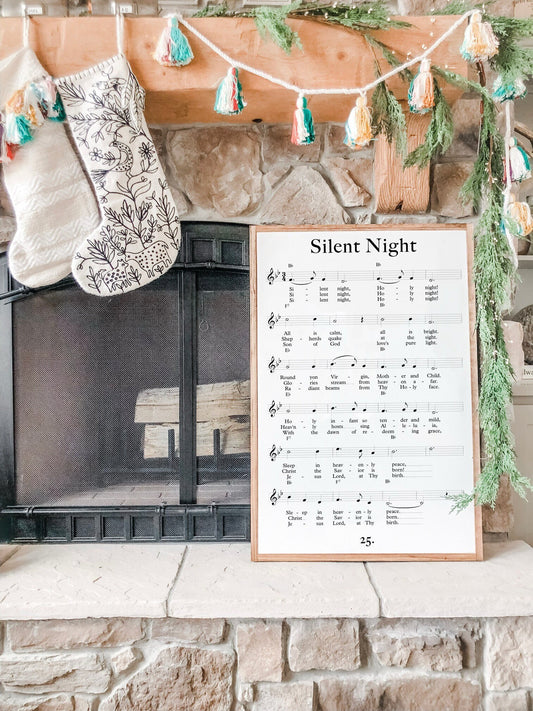 Silent Night
B♭ B♭
Si - lent night, Ho - ly night!
Si - lent night, Ho - ly night!
Si - lent night, Ho - ly night!
F⁷ B♭
All is calm, all is bright.
Shep - herds quake at the sight.
Son of God love's pure light.
E♭ B♭
Round yon Vir - gin, Moth - er and Child.
Glo - ries stream from heav - en a - far.
Ra - diant beams from Thy Ho - ly face,
E♭ B♭
Ho - ly in - fant so ten - der and mild,
Heav'n - ly hosts sing Al - le - lu - ia,
With the dawn of re - deem - ing grace,
F⁷ B♭
Sleep in heav - en - ly peace,
Christ the Sav - ior is born!
Je - sus, Lord, at Thy birth,
B♭ F⁷ B♭
Sleep in heav - en - ly peace.
Christ the Sav - ior is born.
Je - sus Lord, at Thy birth.
25.